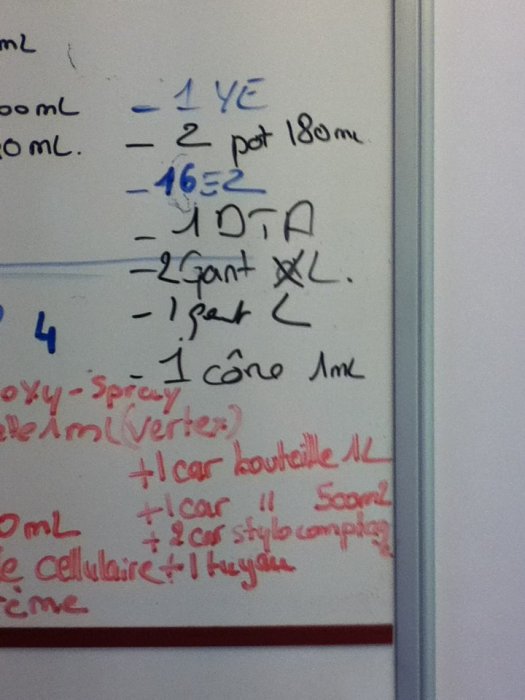 mL
00mL - 1 YE
0mL. - 2 pot 180mL
- 16=2
- 1 DTA
- 2 Gant XL.
4 - 1 gant L
- 1 cône 1mL
oxy-Spray
1mL (vertex)
+1 car bouteille 1L
+1 car " 500mL
0mL + 2 car stylo comptag
e cellulaire + 1 tuyau
ème